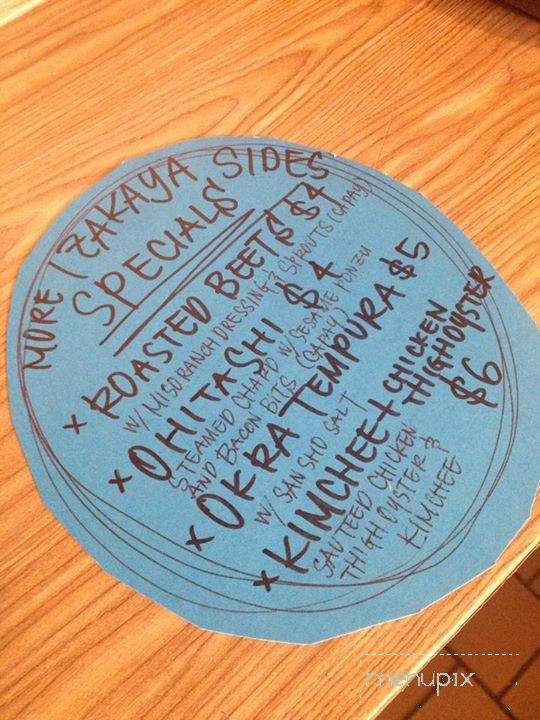 MORE IZAKAYA SIDES
SPECIALS
x ROASTED BEETS $4
W/ MISO RANCH DRESSING & SPROUTS (CAPAY)
x OHITASHI $4
STEAMED CHARD W/ SESAME PONZU
AND BACON BITS (CAPAY)
x OKRA TEMPURA $5
W/ SAN SHO SALT
x KIMCHEE + CHICKEN
THIGH OYSTER
$6
SAUTEED CHICKEN
THIGH OYSTER &
KIMCHEE
menupix